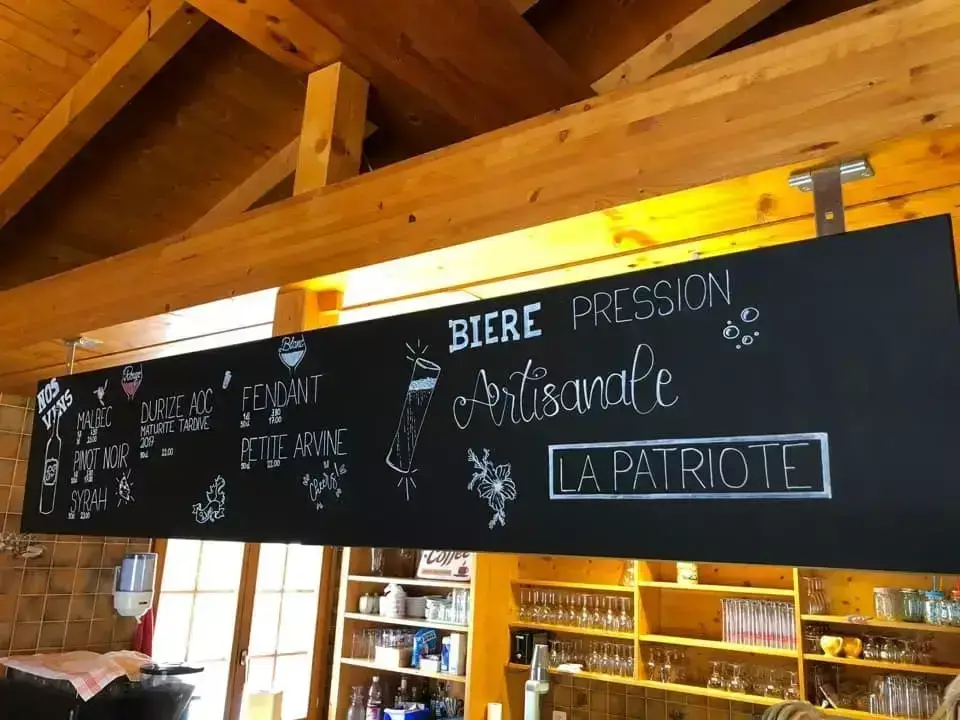 NOS
VINS
Rouge
MALBEC
PINOT NOIR
SYRAH
DURIZE AOC
MATURITE TARDIVE
2017
22.00
Blanc
FENDANT
1dl 3.80
50cl 19.00
PETITE ARVINE
50cl 22.00
Cheers
BIERE PRESSION
Artisanale
LA PATRIOTE
Coffee